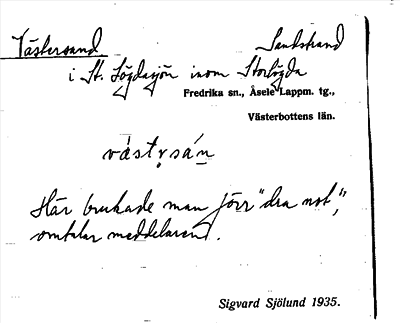 Västersand Sandstrand
i St. Lögdasjön inom Storlögda
Fredrika sn., Åsele Lappm. tg.,
Västerbottens län.
västṛsán
Här brukade man förr "dra not",
omtalar meddelaren.
Sigvard Sjölund 1935.